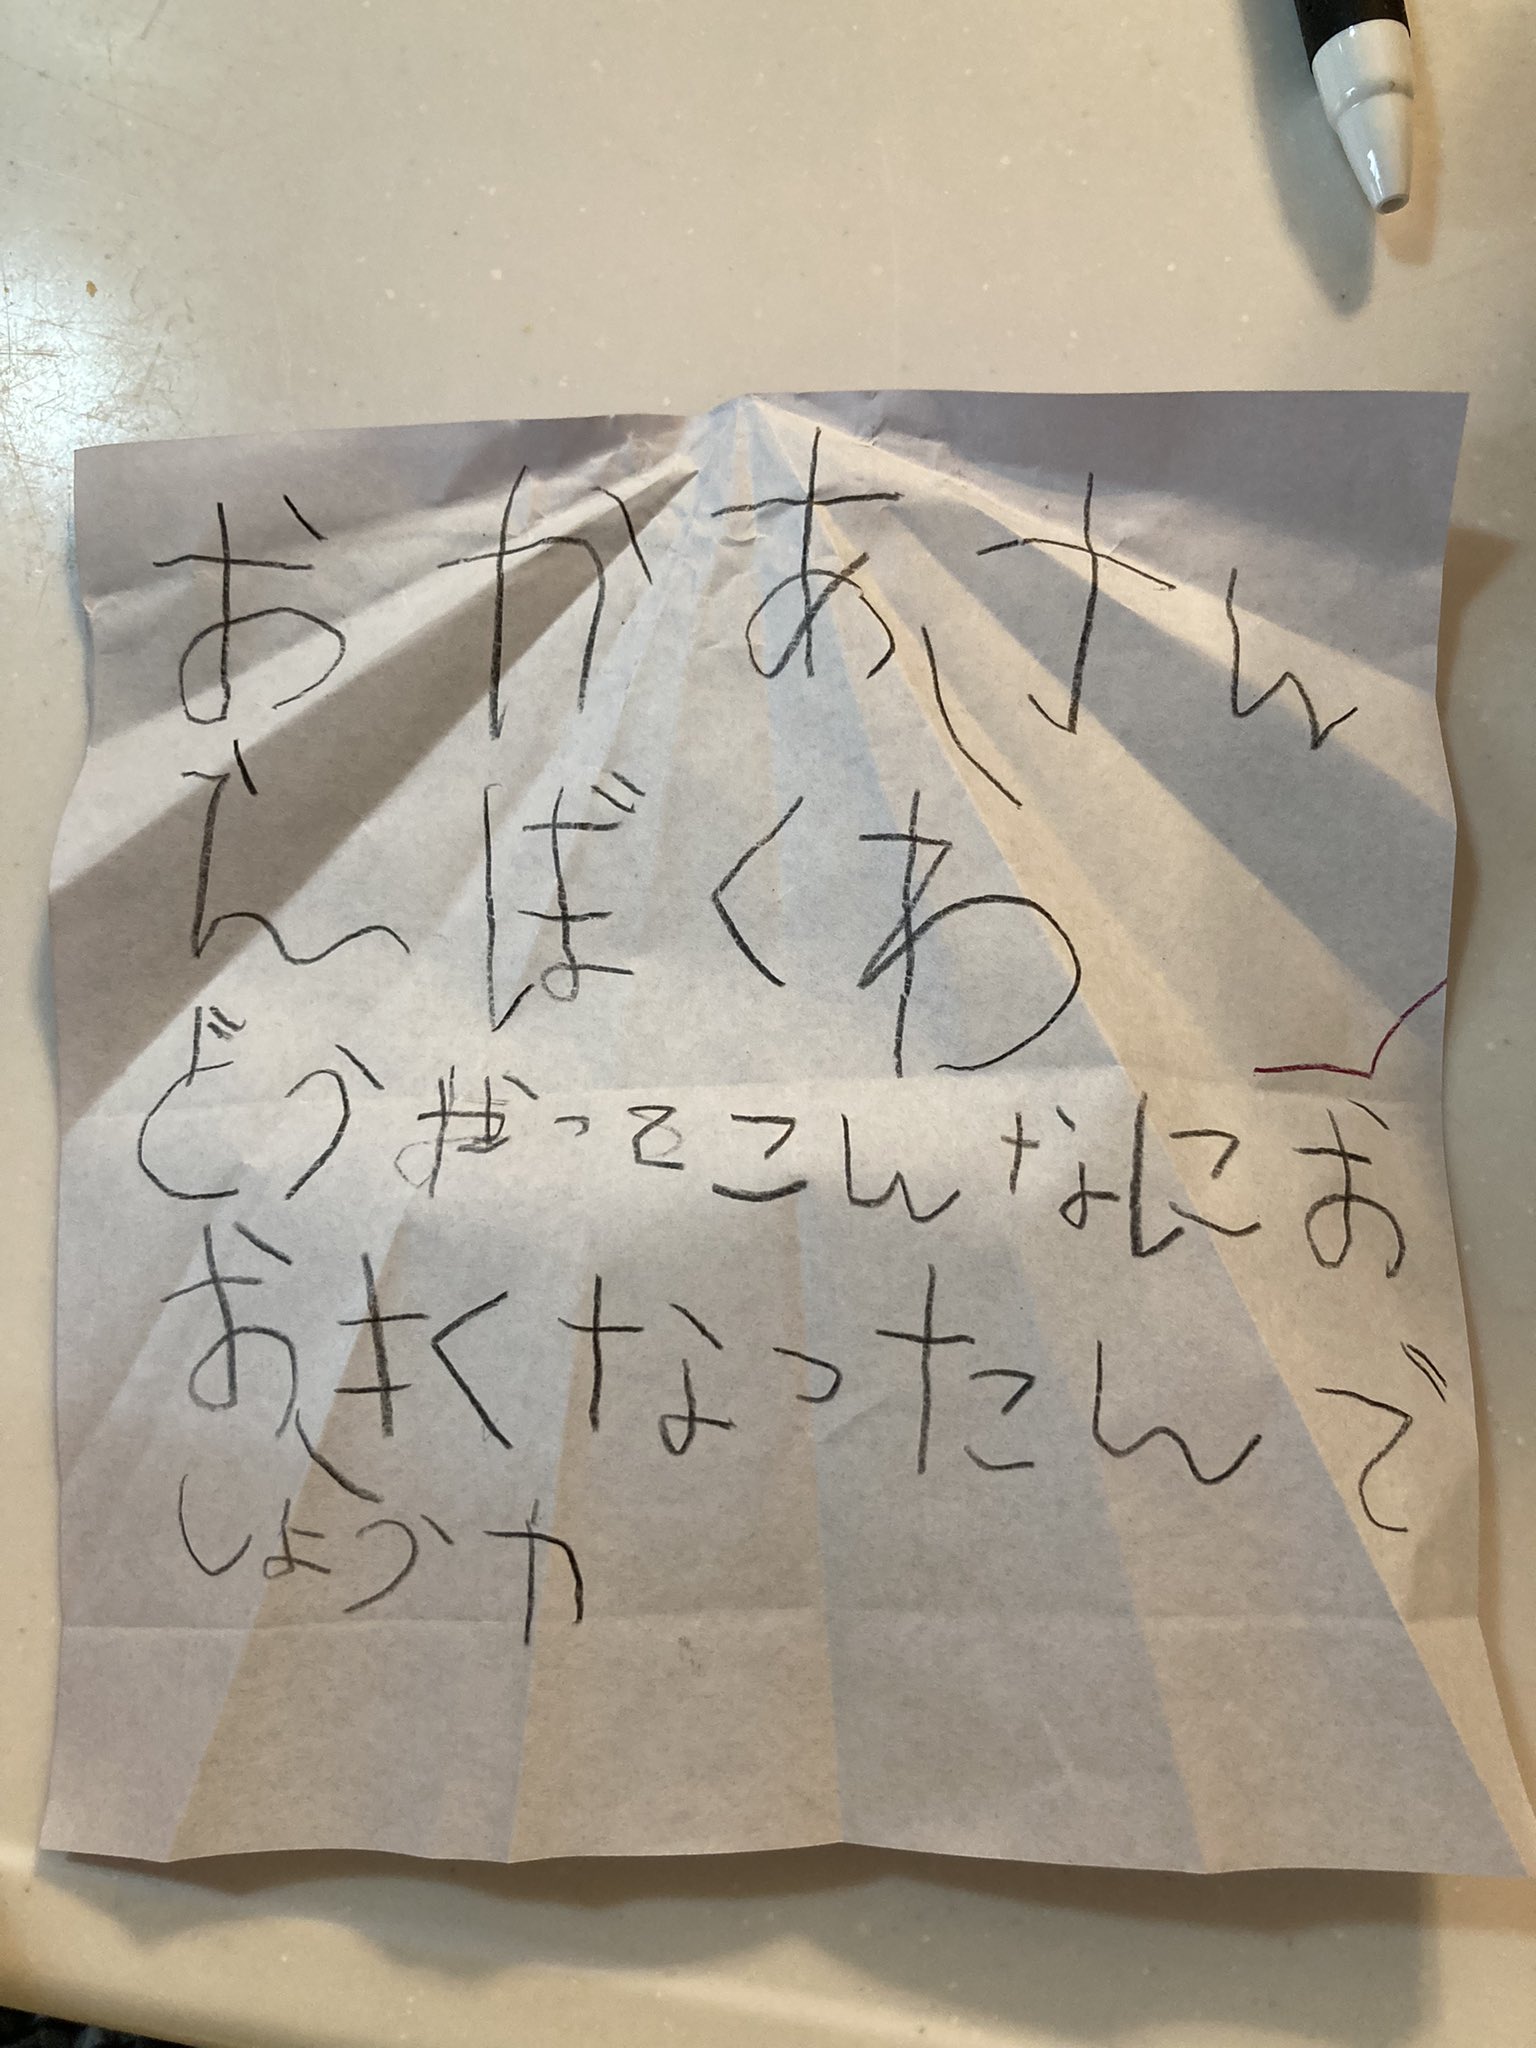 おかあさん
えぼくわ
どうやってこんなにお
おきくなったんで
しょうか